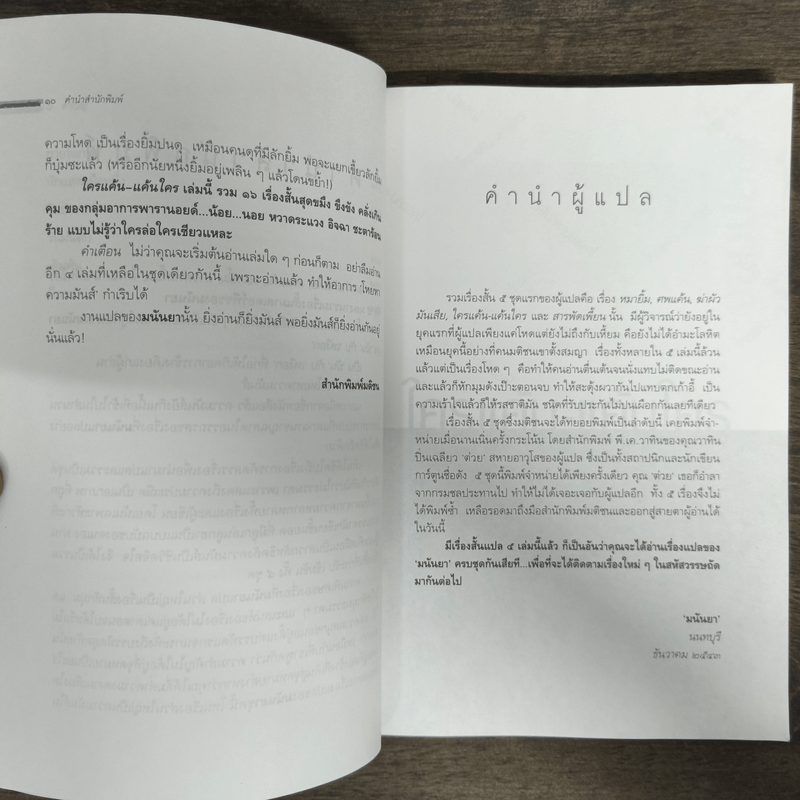 ๑๐ คำนำสำนักพิมพ์
ความโหด เป็นเรื่องยิ้มปนดุ เหมือนคนดุที่มีลักยิ้ม พอจะแยกเขี้ยวลักยิ้ม
ก็บุ๋มซะแล้ว (หรืออีกนัยหนึ่งยิ้มอยู่เพลิน ๆ แล้วโดนขย้ำ!)
ใครแค้น-แค้นใคร เล่มนี้ รวม ๑๖ เรื่องสั้นสุดขมึง ขึงขัง คลั่งเกิน
คุม ของกลุ่มอาการพารานอยด์...น้อย...นอย หวาดระแวง อิจฉา ชะตาร้อน
ร้าย แบบไม่รู้ว่าใครล่อใครเชียวแหละ
คำเตือน ไม่ว่าคุณจะเริ่มต้นอ่านเล่มใด ๆ ก่อนก็ตาม อย่าลืมอ่าน
อีก ๔ เล่มที่เหลือในชุดเดียวกันนี้ เพราะอ่านแล้ว ทำให้อาการ 'โหยหา
ความมันส์' กำเริบได้
งานแปลของมนันยานั้น ยิ่งอ่านก็ยิ่งมันส์ พอยิ่งมันส์ก็ยิ่งอ่านกันอยู่
นั่นแล้ว!
สำนักพิมพ์มติชน
คำนำผู้แปล
รวมเรื่องสั้น ๕ ชุดแรกของผู้แปลคือ เรื่อง หมายิ้ม, ศพแค้น, ฆ่าผัว
มันเสีย, ใครแค้น-แค้นใคร และ สารพัดเพี้ยน นั้น มีผู้วิจารณ์ว่ายังอยู่ใน
ยุคแรกที่ผู้แปลเพียงแค่โหดแต่ยังไม่ถึงกับเหี้ยม คือยังไม่ได้อำมะโลหิต
เหมือนยุคนี้อย่างที่คนมติชนเขาตั้งสมญา เรื่องทั้งหลายใน ๕ เล่มนี้ล้วน
แล้วแต่เป็นเรื่องโหด ๆ คือทำให้คนอ่านตื่นเต้นจนนั่งแทบไม่ติดขณะอ่าน
และแล้วก็หักมุมดังเป๊าะตอนจบ ทำให้สะดุ้งผวากันไปแทบตกเก้าอี้ เป็น
ความเร้าใจแล้วก็ให้รสชาติมัน ชนิดที่รับประกันไม่ปนเผือกกันเลยทีเดียว
เรื่องสั้น ๕ ชุดซึ่งมติชนจะได้ทยอยพิมพ์เป็นลำดับนี้ เคยพิมพ์จำ-
หน่ายเมื่อนานเนิ่นครั้งกระโน้น โดยสำนักพิมพ์ พี.เค.วาทินของคุณวาทิน
ปิ่นเฉลียว 'ต่วย' สหายอาวุโสของผู้แปล ซึ่งเป็นทั้งสถาปนิกและนักเขียน
การ์ตูนชื่อดัง ๕ ชุดนี้พิมพ์จำหน่ายได้เพียงครั้งเดียว คุณ 'ต่วย' เธอก็อำลา
จากกรมชลประทานไป ทำให้ไม่ได้เจอะเจอกับผู้แปลอีก ทั้ง ๕ เรื่องจึงไม่
ได้พิมพ์ซ้ำ เหลือรอดมาถึงมือสำนักพิมพ์มติชนและออกสู่สายตาผู้อ่านได้
ในวันนี้
มีเรื่องสั้นแปล ๕ เล่มนี้แล้ว ก็เป็นอันว่าคุณจะได้อ่านเรื่องแปลของ
'มนันยา' ครบชุดกันเสียที...เพื่อที่จะได้ติดตามเรื่องใหม่ ๆ ในสหัสวรรษถัด
มากันต่อไป
'มนันยา'
นนทบุรี
ธันวาคม ๒๕๔๓